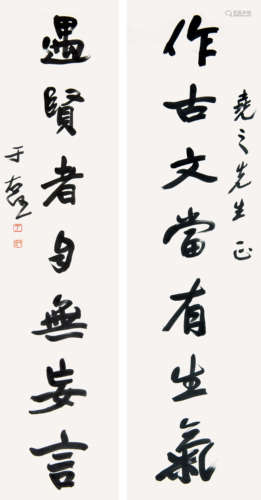 堯之先生正
作古文當有生氣
遇賢者自無妄言
于右任